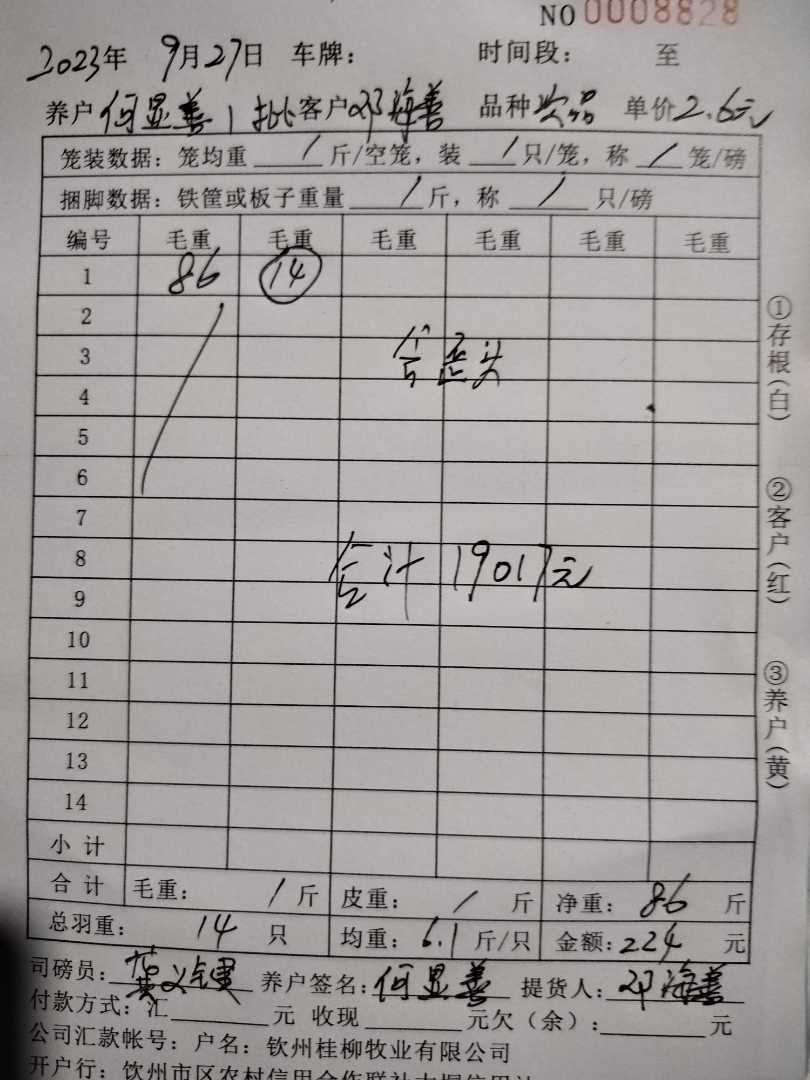 NO 0008828
2023年 9月27日 车牌： 时间段： 至
养户 何显善1批 客户 邓海善 品种 次品 单价 2.6元
笼装数据：笼均重 / 斤/空笼，装 / 只/笼，称 / 笼/磅
捆脚数据：铁筐或板子重量 / 斤，称 / 只/磅
编号 毛重 毛重 毛重 毛重 毛重 毛重
1 86 14
2
3 含歪头
4
5
6
7
8 合计 19017元
9
10
11
12
13
14
小计
合计 毛重： / 斤 皮重： / 斤 净重：86 斤
总羽重： 14 只 均重：6.1 斤/只 金额：224 元
司磅员：黄义键 养户签名：何显善 提货人：邓海善
付款方式：汇 元 收现 元欠（余）： 元
公司汇款帐号：户名：钦州桂柳牧业有限公司
开户行：钦州市区农村信用合作联社大垌信用社
①存根（白） ②客户（红） ③养户（黄）